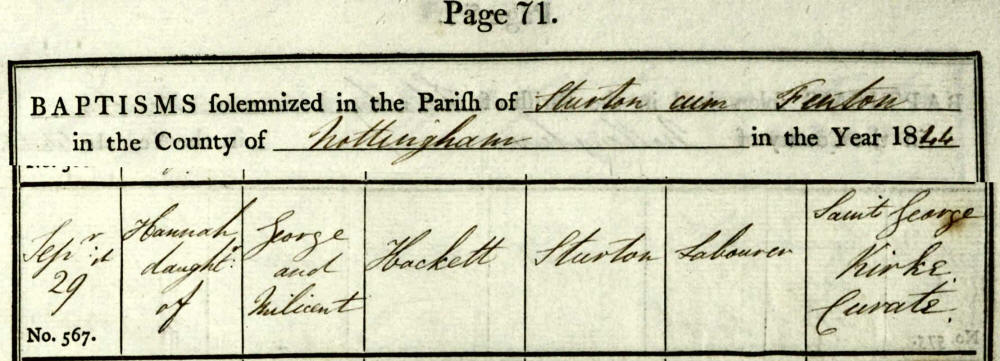 Page 71.
BAPTISMS ſolemnized in the Pariſh of Sturton cum Fenton
in the County of Nottingham in the Year 1844
Sepr.
29
No. 567.
Hannah
daughtr.
of
George
and
Milicent
Hackett
Sturton
Labourer
Saint George
Kirke
Curate.